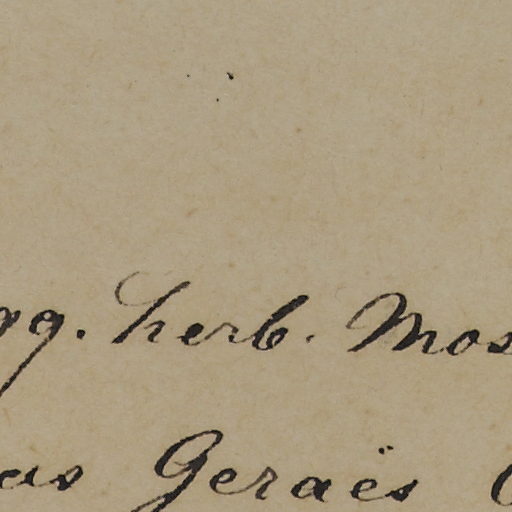 gg. herb. Mos
as Geraës